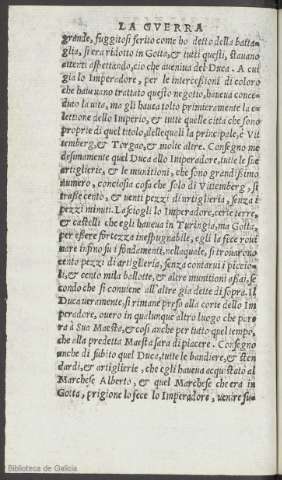 LA GVERRA
grande, fuggitosi ferito come ho detto della batta-
glia, si era ridotto in Gotta, & tutti questi, stauano
attenti aspettando, cio che aueniua del Duca. A cui
gia lo Imperadore, per le intercessioni di coloro
che haueuano trattato questo negotio, haueua conce-
duto la uita, ma gli haueua tolto primieramente la e
lettione dello Imperio, & tutte quelle città che sono
proprie di quel titolo, delle quali la principale, è Vit
temberg, & Torgao, & molte altre. Consegno me
desimamente quel Duca allo Imperadore, tutte le sue
artiglierie, & le munitioni, che sono grandissimo
numero, conciosia cosa che solo di Vittemberg, si
trasse cento, & uenti pezzi di artiglieria, senza i
pezzi minuti. Lasciogli lo Imperadore, certe terre,
& castelli che egli haueua in Turingia, ma Gotta,
per essere fortezza inespugnabile, egli la fece roui
nare insino su i fondamenti, nella quale, si trouarono
cento pezzi di artiglieria, senza contarui i piccio-
li, & cento mila ballotte, & altre munitioni assai, se
condo che si conuiene all'altre gia dette di sopra. Il
Duca ueramente, si rimane preso alla corte dello Im
peradore, ouero in qualunque altro luogo che pare
rà à Sua Maestà, & cosi anche per tutto quel tempo,
che alla predetta Maestà sarà di piacere. Consegno
anche di subito quel Duca, tutte le bandiere, & sten
dardi, & artiglierie, che egli haueua acquistato al
Marchese Alberto, & quel Marchese che era in
Gotta, prigione lo fece lo Imperadore, uenire su-
Biblioteca de Galicia